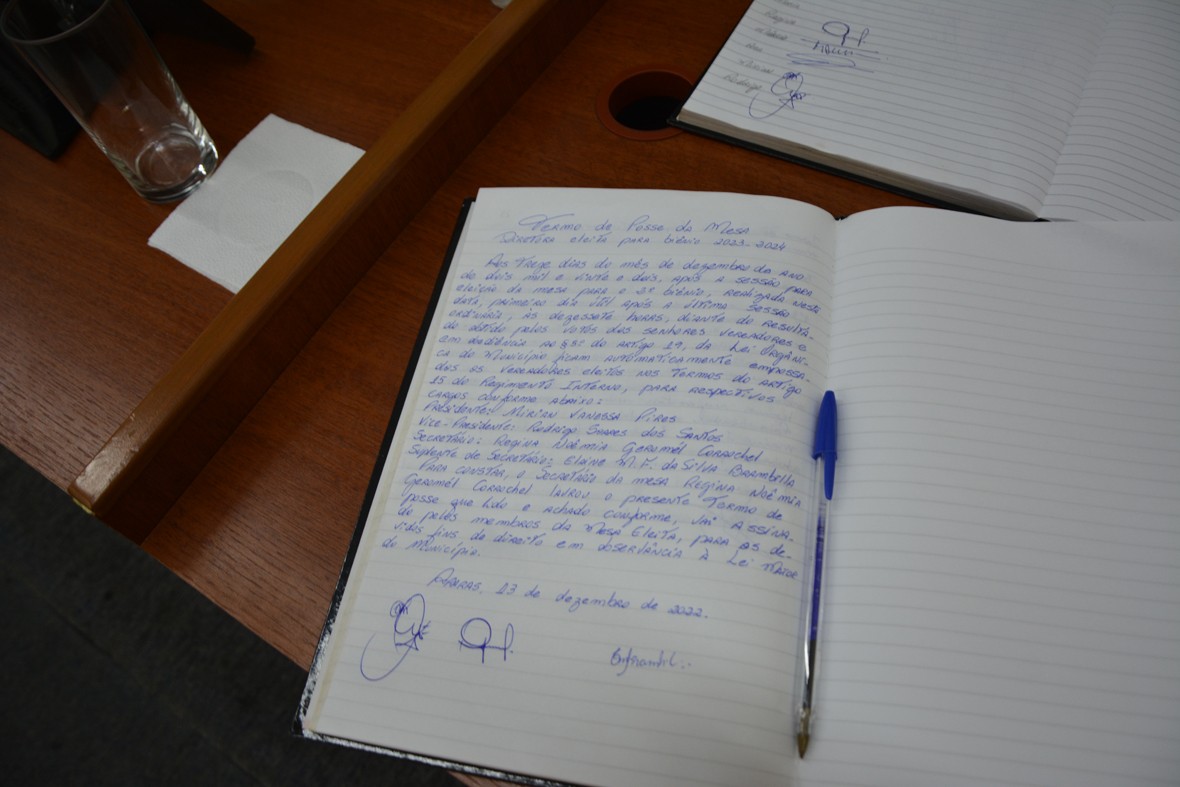 Termo de Posse da Mesa
Diretora eleita para biênio 2023-2024
Aos treze dias do mês de dezembro do ano
de dois mil e vinte e dois, após a sessão para
eleição da mesa para o 2º biênio, realizada nesta
data, primeiro dia útil após a última sessão
ordinária, às dezessete horas, diante do resulta-
do obtido pelos votos dos senhores vereadores e
em obediência ao §3º do artigo 19, da Lei Orgâni-
ca do Município ficam automaticamente empossa-
dos os vereadores eleitos nos termos do artigo
15 do Regimento Interno, para respectivos
cargos conforme abaixo:
Presidente: Mirian Vanessa Pires
Vice-Presidente: Rodrigo Soares dos Santos
Secretário: Regina Noêmia Geromél Corrochel
Suplente de Secretário: Elaine M. F. da Silva Brambilla
Para constar, o Secretário da mesa Regina Noêmia
Geromél Corrochel lavrou o presente Termo de
posse que lido e achado conforme, vai assina-
do pelos membros da Mesa Eleita, para os de-
vidos fins, de direito em observância à Lei Maior
do Município.
Araras, 13 de dezembro de 2022.